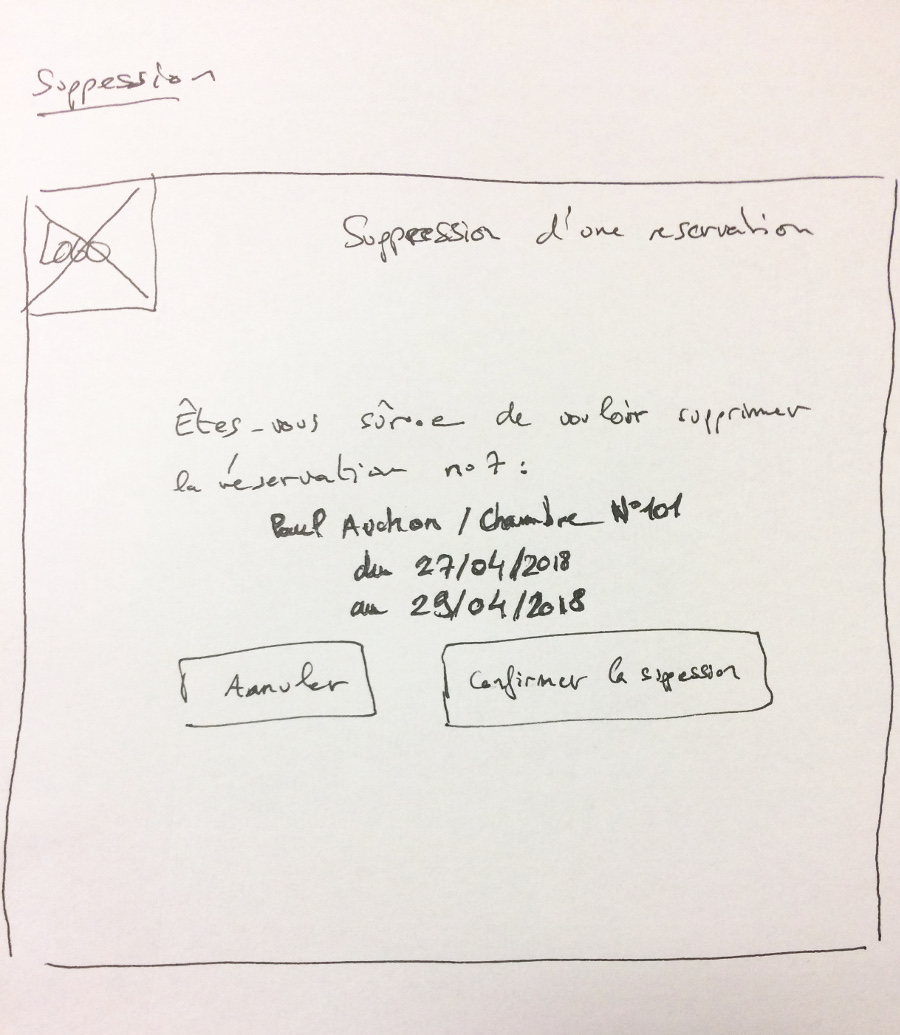 Suppession
Logo
Suppression d'une reservation
Êtes-vous sûr.e de vouloir supprimer
la réservation no 7 :
Paul Auchon / Chambre N°101
du 27/04/2018
au 29/04/2018
Annuler
Confirmer la suppession